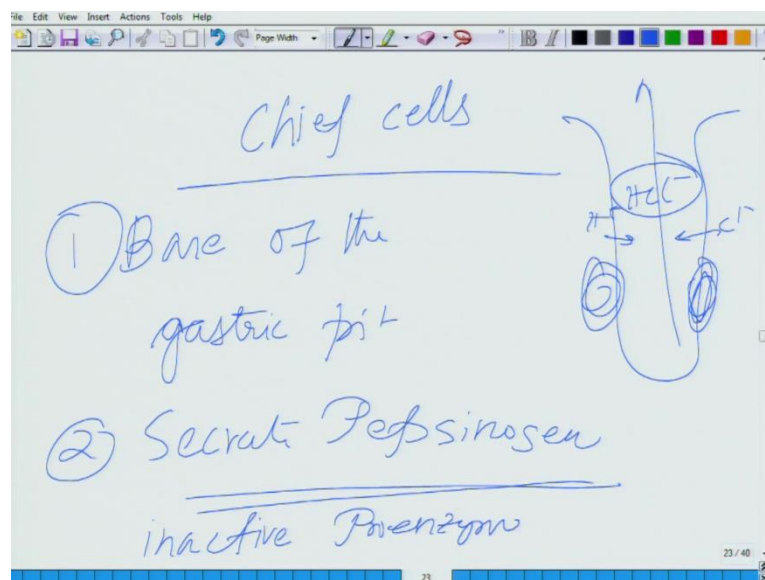 File Edit View Insert Actions Tools Help
Page Width
Chief cells
① Base of the
gastric pit
② Secrate Pepsinogen
inactive Proenzym
HCl⁻
H⁺
Cl⁻
23 / 40
23